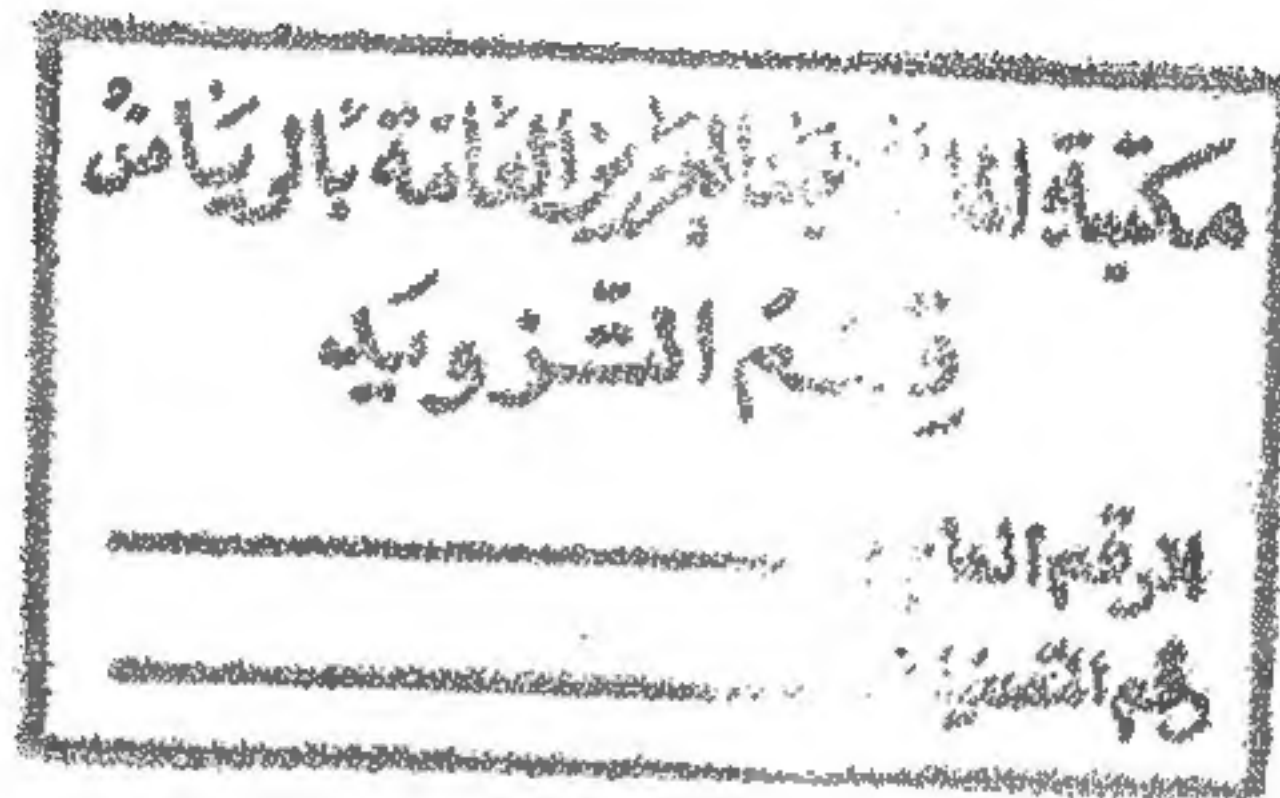 مكتبة الملك عبد العزيز العامة بالرياض
قسم التزويد
الرقم العام
رقم التصنيف